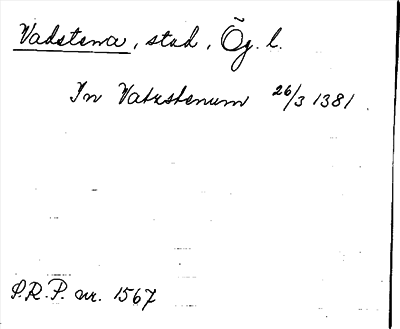 Vadstena, stad, Ög. l.
In Vatzstenum 26/3 1381.
S.R.P. nr. 1567